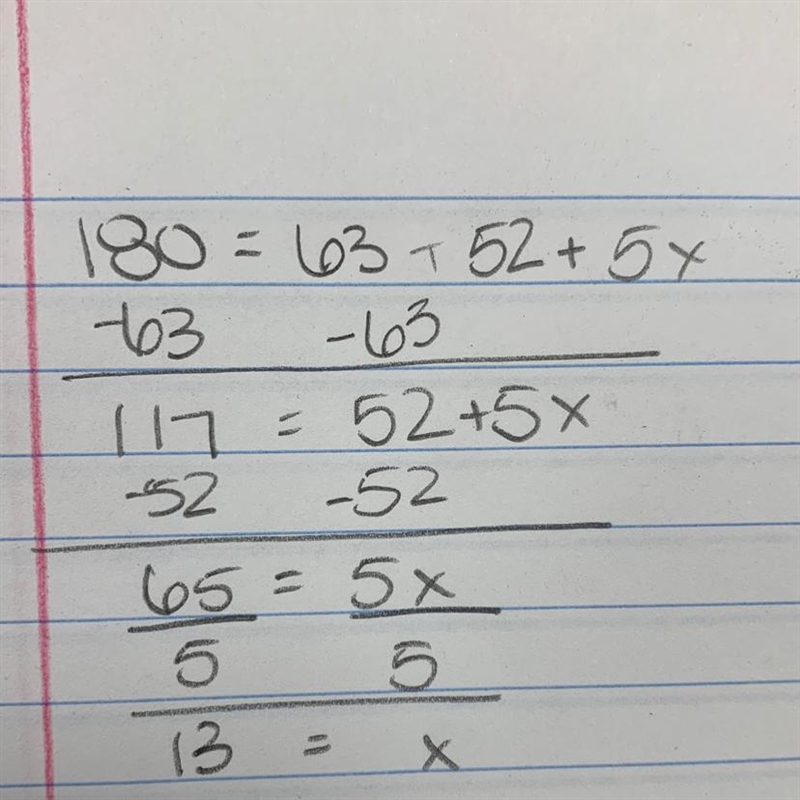 180 = 63 + 52 + 5x
-63 -63
117 = 52+5x
-52 -52
65 = 5x
5 5
13 = x